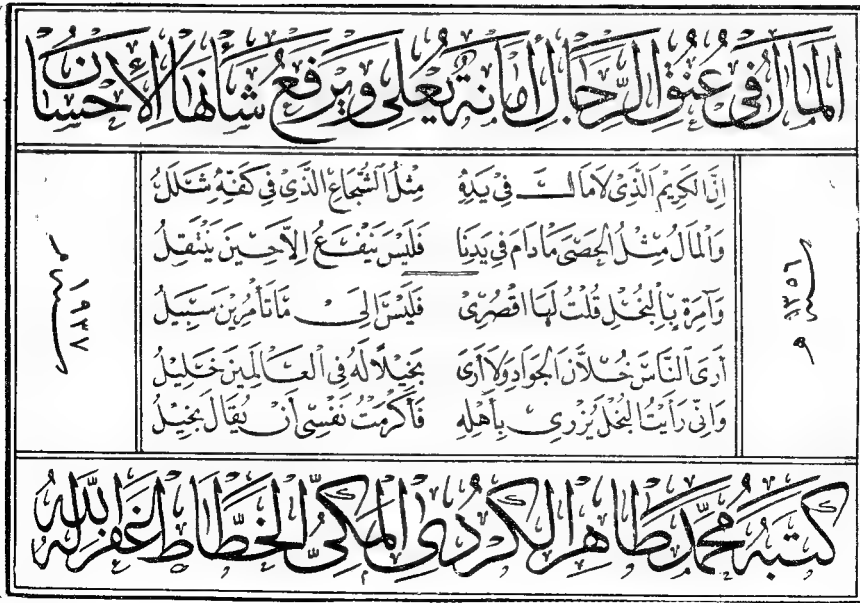 المَالُ فِى عُنُقِ الرِّجَالِ أَمَانَةٌ يُعْلِى وَيَرْفَعُ شَأْنَهَا الإِحْسَانُ
اِنَّ الكَرِيمَ الَّذِى لَا مَالَ فِى يَدِهِ مِثْلُ الشُّجَاعِ الَّذِى فِى كَفِّهِ شَلَلُ
وَالمَالُ مِثْلُ الحَصَى مَا دَامَ فِى يَدِنَا فَلَيْسَ يَنْفَعُ اِلاَّ حِينَ يَنْتَقِلُ
وَآمِرَةٍ بِالبُخْلِ قُلْتُ لَهَا اقْصُرِى فَلَيْسَ اِلَى مَا تَأْمُرِينَ سَبِيلُ
أَرَى النَّاسَ خُلاَّنَ الجَوَادِ وَلاَ أَرَى بَخِيلاً لَهُ فِى العَالَمِينَ خَلِيلُ
وَاِنِّى رَأَيْتُ البُخْلَ يُزْرِى بِأَهْلِهِ فَأَكْرَمْتُ نَفْسِى أَنْ يُقَالَ بَخِيلُ
سنة ١٣٥٦ هـ
سنة ١٩٣٧ م
كَتَبَهُ مُحَمَّد طَاهِر الكُرْدِى المَكِّىُّ الخَطَّاط غَفَرَ اللهُ لَهُ